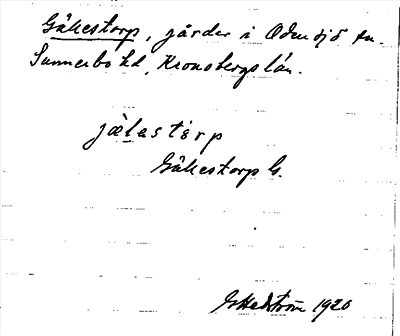 Gåkestorp, gårder i Odensjö sn.
Sunnerbo hd, Kronobergs län.
jælastèrp
Gåkestorp G.
G Hedström 1920